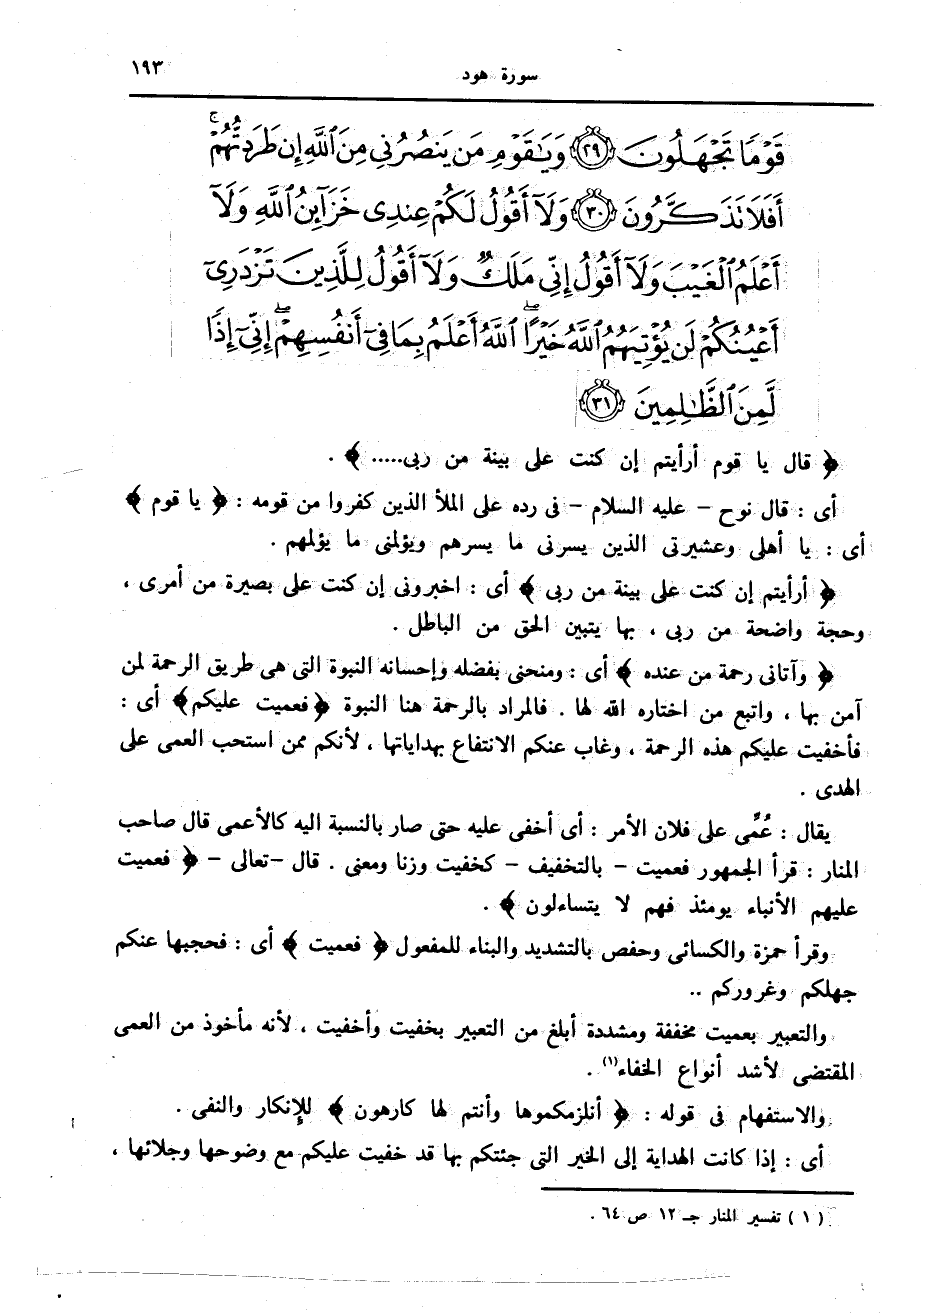 سورة هود
١٩٣
قَوْمًا تَجْهَلُونَ ٢٩ وَيَٰقَوْمِ مَن يَنصُرُنِى مِنَ ٱللَّهِ إِن طَرَدتُّهُمْۚ
أَفَلَا تَذَكَّرُونَ ٣٠ وَلَآ أَقُولُ لَكُمْ عِندِى خَزَآئِنُ ٱللَّهِ وَلَآ
أَعْلَمُ ٱلْغَيْبَ وَلَآ أَقُولُ إِنِّى مَلَكٌ وَلَآ أَقُولُ لِلَّذِينَ تَزْدَرِىٓ
أَعْيُنُكُمْ لَن يُؤْتِيَهُمُ ٱللَّهُ خَيْرًاۖ ٱللَّهُ أَعْلَمُ بِمَا فِىٓ أَنفُسِهِمْۖ إِنِّىٓ إِذًا
لَّمِنَ ٱلظَّٰلِمِينَ ٣١
﴿ قال يا قوم أرأيتم إن كنت على بينة من ربى..... ﴾ .
أى : قال نوح – عليه السلام – فى رده على الملأ الذين كفروا من قومه : ﴿ يا قوم ﴾
أى : يا أهلى وعشيرتى الذين يسرنى ما يسرهم ويؤلمنى ما يؤلمهم .
﴿ أرأيتم إن كنت على بينة من ربى ﴾ أى : اخبرونى إن كنت على بصيرة من أمرى ،
وحجة واضحة من ربى ، بها يتبين الحق من الباطل .
﴿ وآتانى رحمة من عنده ﴾ أى : ومنحنى بفضله وإحسانه النبوة التى هى طريق الرحمة لمن
آمن بها ، واتبع من اختاره الله لها . فالمراد بالرحمة هنا النبوة ﴿فعميت عليكم﴾ أى :
فأخفيت عليكم هذه الرحمة ، وغاب عنكم الانتفاع بهداياتها ، لأنكم ممن استحب العمى على
الهدى .
يقال : عُمِّى على فلان الأمر : أى أخفى عليه حتى صار بالنسبة اليه كالأعمى قال صاحب
المنار : قرأ الجمهور فعميت – بالتخفيف – كخفيت وزنا ومعنى . قال –تعالى – ﴿ فعميت
عليهم الأنباء يومئذ فهم لا يتساءلون ﴾ .
وقرأ حمزة والكسائى وحفص بالتشديد والبناء للمفعول ﴿ فعميت ﴾ أى : فحجبها عنكم
جهلكم وغروركم ..
والتعبير بعميت مخففة ومشددة أبلغ من التعبير بخفيت وأخفيت ، لأنه مأخوذ من العمى
المقتضى لأشد أنواع الخفاء(١) .
والاستفهام فى قوله : ﴿ أنلزمكموها وأنتم لها كارهون ﴾ للإنكار والنفى .
أى : إذا كانت الهداية إلى الخير التى جئتكم بها قد خفيت عليكم مع وضوحها وجلائها ،
( ١ ) تفسير المنار جـ ١٢ ص ٦٤ .